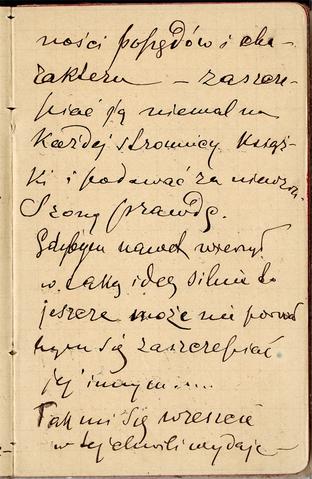 ności popędów i cha-
rakteru – zaszcze-
piać ją niemal na
każdej stronicy książ-
ki i podawać za niewzru-
szoną prawdę.
Gdybym nawet wierzył
w taką ideę silnie to
jeszcze może nie
się zaszczepiać
jej innym.....
Tak mi się wreszcie
w tej chwili wydaje –